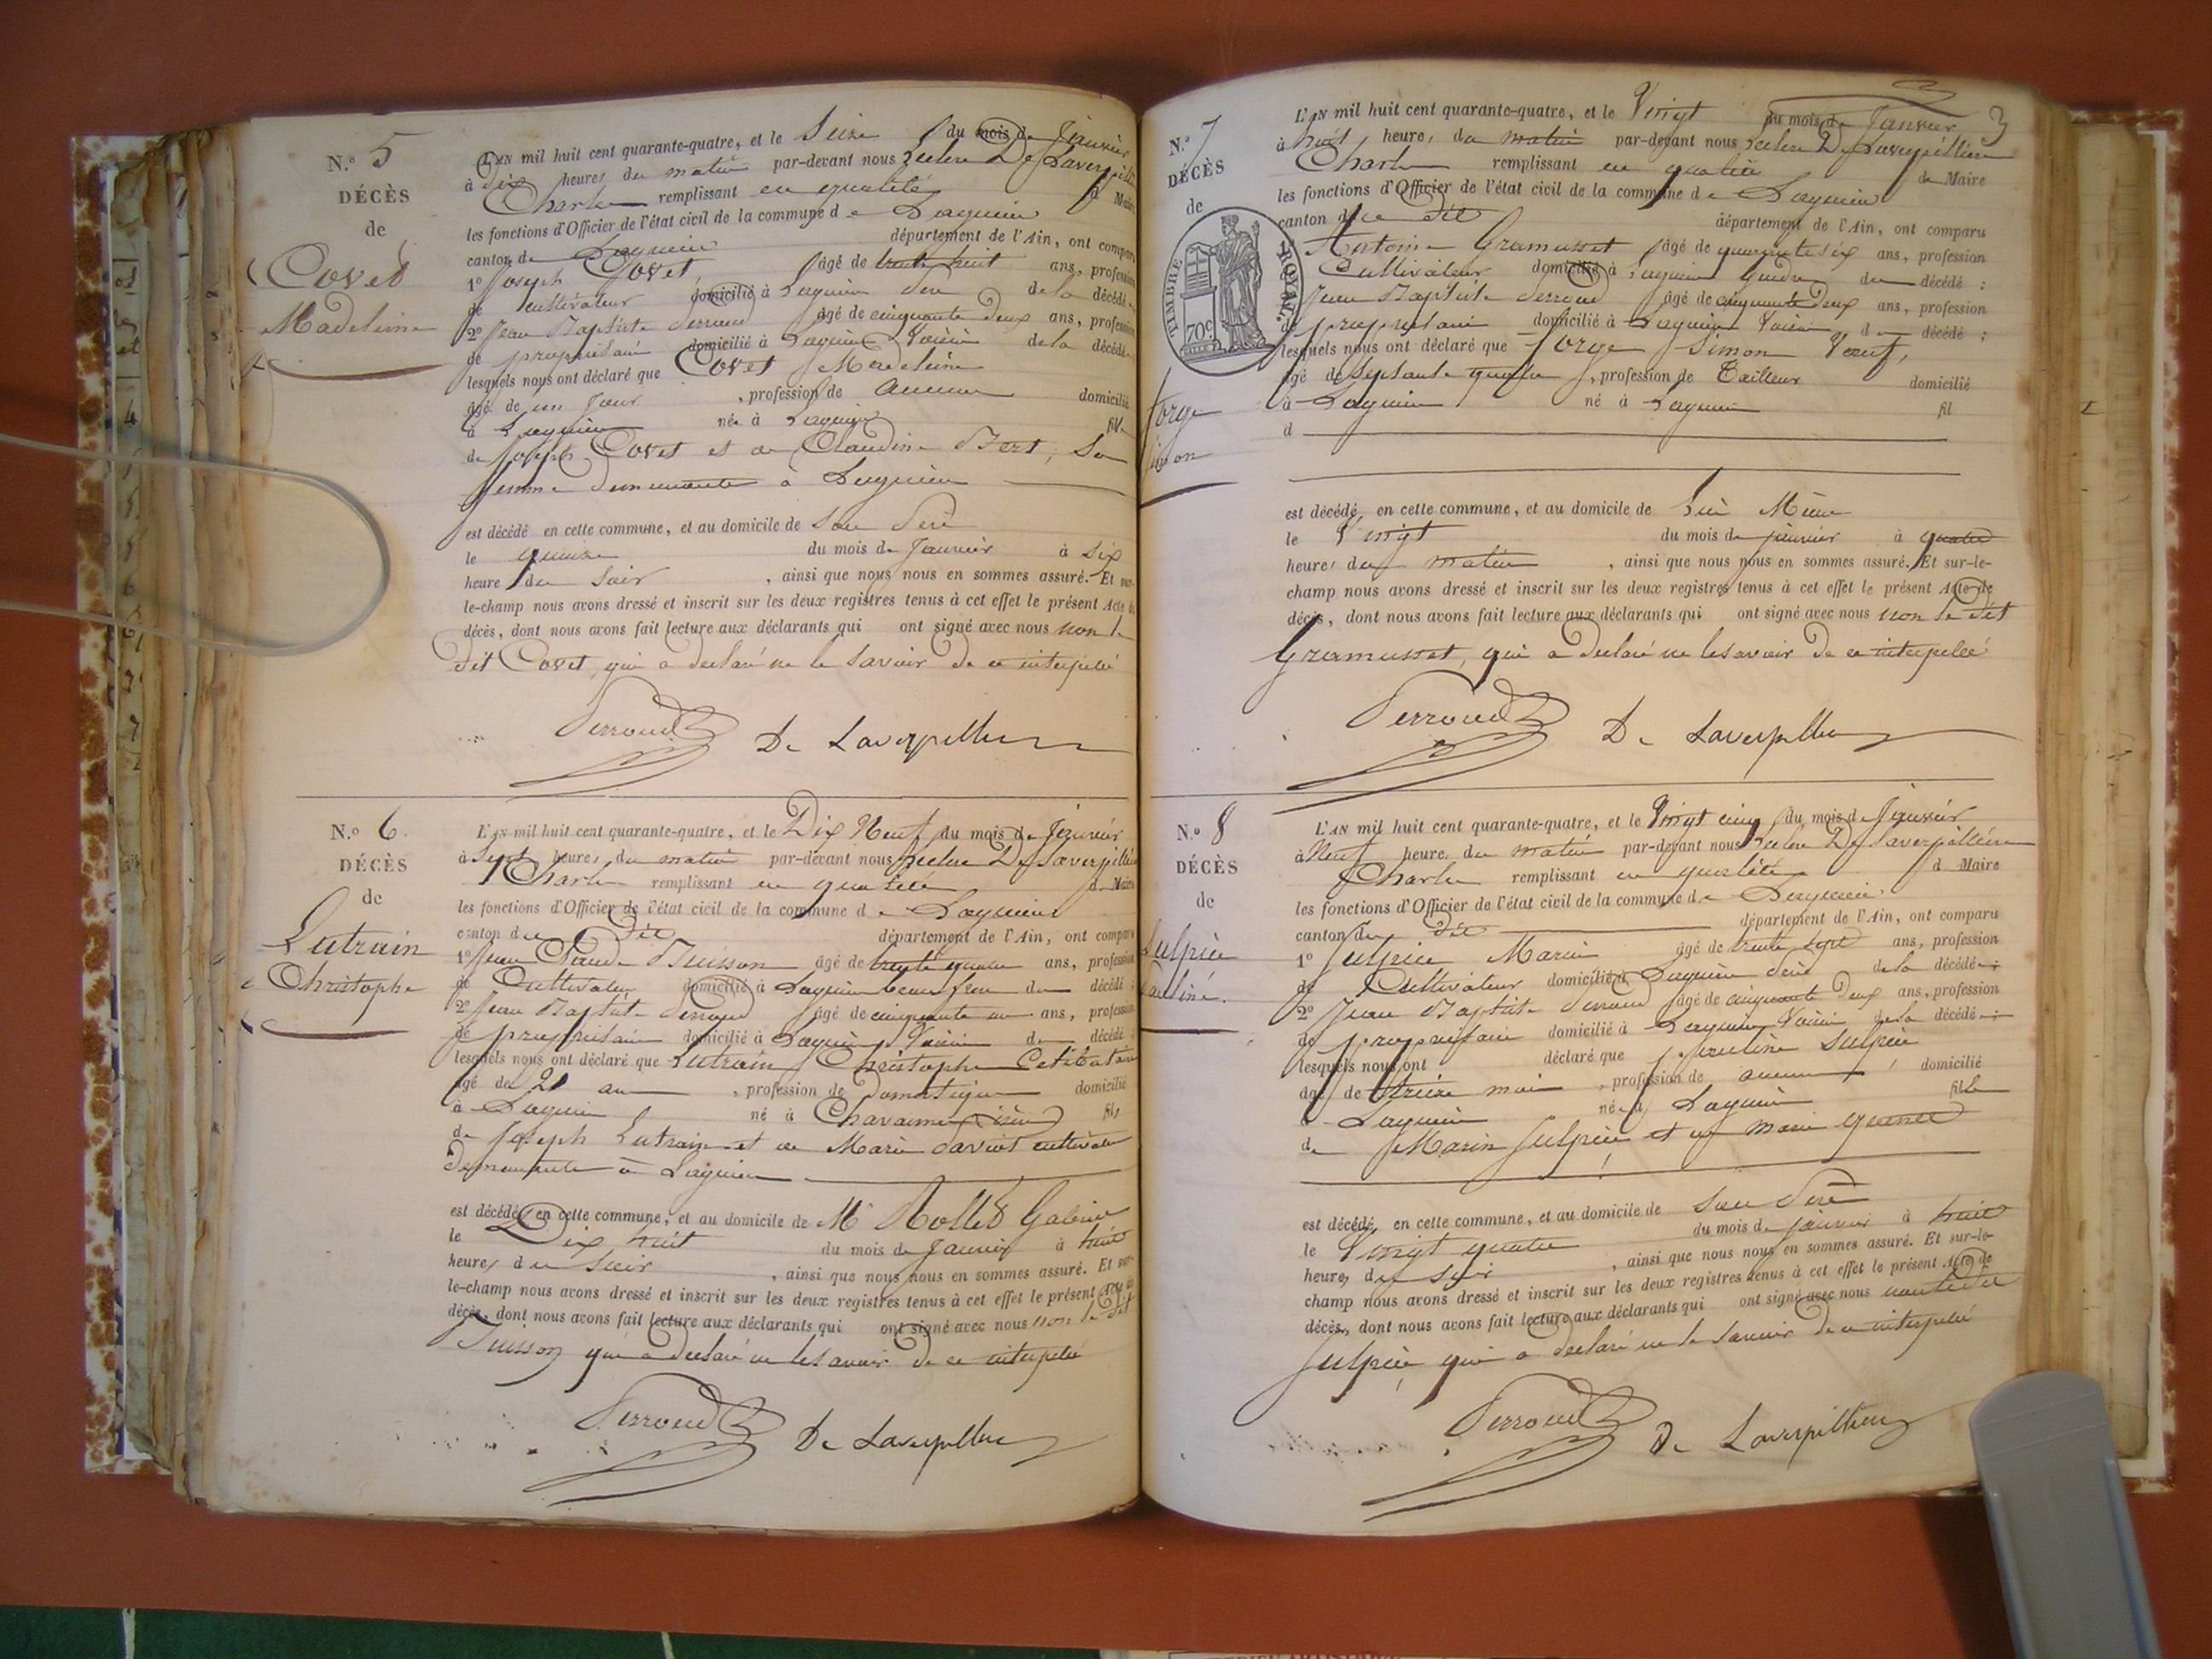 N.º 5
DÉCÈS
de
Covet
Madeleine
L'AN mil huit cent quarante-quatre, et le Seize du mois de Janvier
à dix heures du matin par-devant nous De Laverpillière
Charles remplissant en qualité de Maire
les fonctions d'Officier de l'état civil de la commune de Lagnieu
canton de Lagnieu département de l'Ain, ont comparu
1º Joseph Covet, âgé de trente huit ans, profession
de cultivateur domicilié à Lagnieu Père de la décédée
2º Jean Baptiste Perroud âgé de cinquante deux ans, profession
de propriétaire domicilié à Lagnieu Voisin de la décédée
lesquels nous ont déclaré que Covet Madeleine
âgé de un jour, profession de aucune domicilié
à Lagnieu née à Lagnieu fille
de Joseph Covet et de Claudine Bert, Sa
femme demeurante à Lagnieu
est décédé en cette commune, et au domicile de Son Père
le quinze du mois de Janvier à Six
heure du Soir, ainsi que nous nous en sommes assuré. Et sur-
le-champ nous avons dressé et inscrit sur les deux registres tenus à cet effet le présent Acte de
décès, dont nous avons fait lecture aux déclarants qui ont signé avec nous non le
dit Covet, qui a declaré ne le savoir de ce interpelé
Perroud De Laverpilliere
N.º 6
DÉCÈS
de
Lutrain
Christophe
L'AN mil huit cent quarante-quatre, et le Dix Neuf du mois de Janvier
à Sept heures du matin par-devant nous De Laverpillière
Charles remplissant en qualité de Maire
les fonctions d'Officier de l'état civil de la commune de Lagnieu
canton du dit département de l'Ain, ont comparu
1º Jean Claude Buisson âgé de trente quatre ans, profession
de Cultivateur domicilié à Lagnieu beau frere du décédé
2º Jean Baptiste Perroud âgé de cinquante un ans, profession
de propriétaire domicilié à Lagnieu Voisin du décédé
lesquels nous ont déclaré que Lutrain Christophe Celibataire
âgé de 21 ans, profession de Domestique domicilié
à Lagnieu né à (isère) fils
de Joseph Lutrain et de Marie cultivateur
demeurante à Lagnieu
est décédé en cette commune, et au domicile de Mr
le Dix huit du mois de Janvier à huit
heures du Soir, ainsi que nous nous en sommes assuré. Et sur-
le-champ nous avons dressé et inscrit sur les deux registres tenus à cet effet le présent Acte de
décès, dont nous avons fait lecture aux déclarants qui ont signé avec nous non le dit
Buisson qui a declaré ne le savoir de ce interpelé
Perroud De Laverpilliere
3
N.º 7
DÉCÈS
de
TIMBRE ROYAL
70c
forge
Simon
L'AN mil huit cent quarante-quatre, et le Vingt du mois de Janvier
à huit heures du matin par-devant nous De Laverpillière
Charles remplissant en qualité de Maire
les fonctions d'Officier de l'état civil de la commune de Lagnieu
canton du dit département de l'Ain, ont comparu
Antoine Gramusset âgé de quarante six ans, profession
Cultivateur domicilié à Lagnieu Gendre du décédé ;
Jean Baptiste Perroud âgé de cinquante deux ans, profession
de propriétaire domicilié à Lagnieu Voisin du décédé ;
lesquels nous ont déclaré que forge Simon Veuf,
âgé de septante quatre, profession de Tailleur domicilié
à Lagnieu né à Lagnieu fil
d
est décédé en cette commune, et au domicile de Lui Même
le Vingt du mois de janvier à quatre
heures du matin, ainsi que nous nous en sommes assuré. Et sur-le-
champ nous avons dressé et inscrit sur les deux registres tenus à cet effet le présent Acte de
décès, dont nous avons fait lecture aux déclarants qui ont signé avec nous non le dit
Gramusset, qui a declaré ne le savoir de ce interpelé
Perroud De Laverpilliere
N.º 8
DÉCÈS
de
Sulpice
Pauline.
L'AN mil huit cent quarante-quatre, et le Vingt cinq du mois de Janvier
à Neuf heures du matin par-devant nous De Laverpillière
Charles remplissant en qualité de Maire
les fonctions d'Officier de l'état civil de la commune de Lagnieu
canton du dit département de l'Ain, ont comparu
1º Sulpice Marin âgé de trente sept ans, profession
de Cultivateur domicilié à Lagnieu Père de la décédée ;
2º Jean Baptiste Perroud âgé de cinquante deux ans, profession
de propriétaire domicilié à Lagnieu Voisin de la décédée ;
lesquels nous ont déclaré que Pauline Sulpice
âgé de treize mois, profession de aucune, domicilié
à Lagnieu née à Lagnieu fille
de Marin Sulpice et de Marie
est décédé en cette commune, et au domicile de Son Père
le Vingt quatre du mois de janvier à huit
heures du soir, ainsi que nous nous en sommes assuré. Et sur-le-
champ nous avons dressé et inscrit sur les deux registres tenus à cet effet le présent Acte de
décès, dont nous avons fait lecture aux déclarants qui ont signé avec nous non le dit
Sulpice, qui a declaré ne le savoir de ce interpelé
Perroud De Laverpilliere